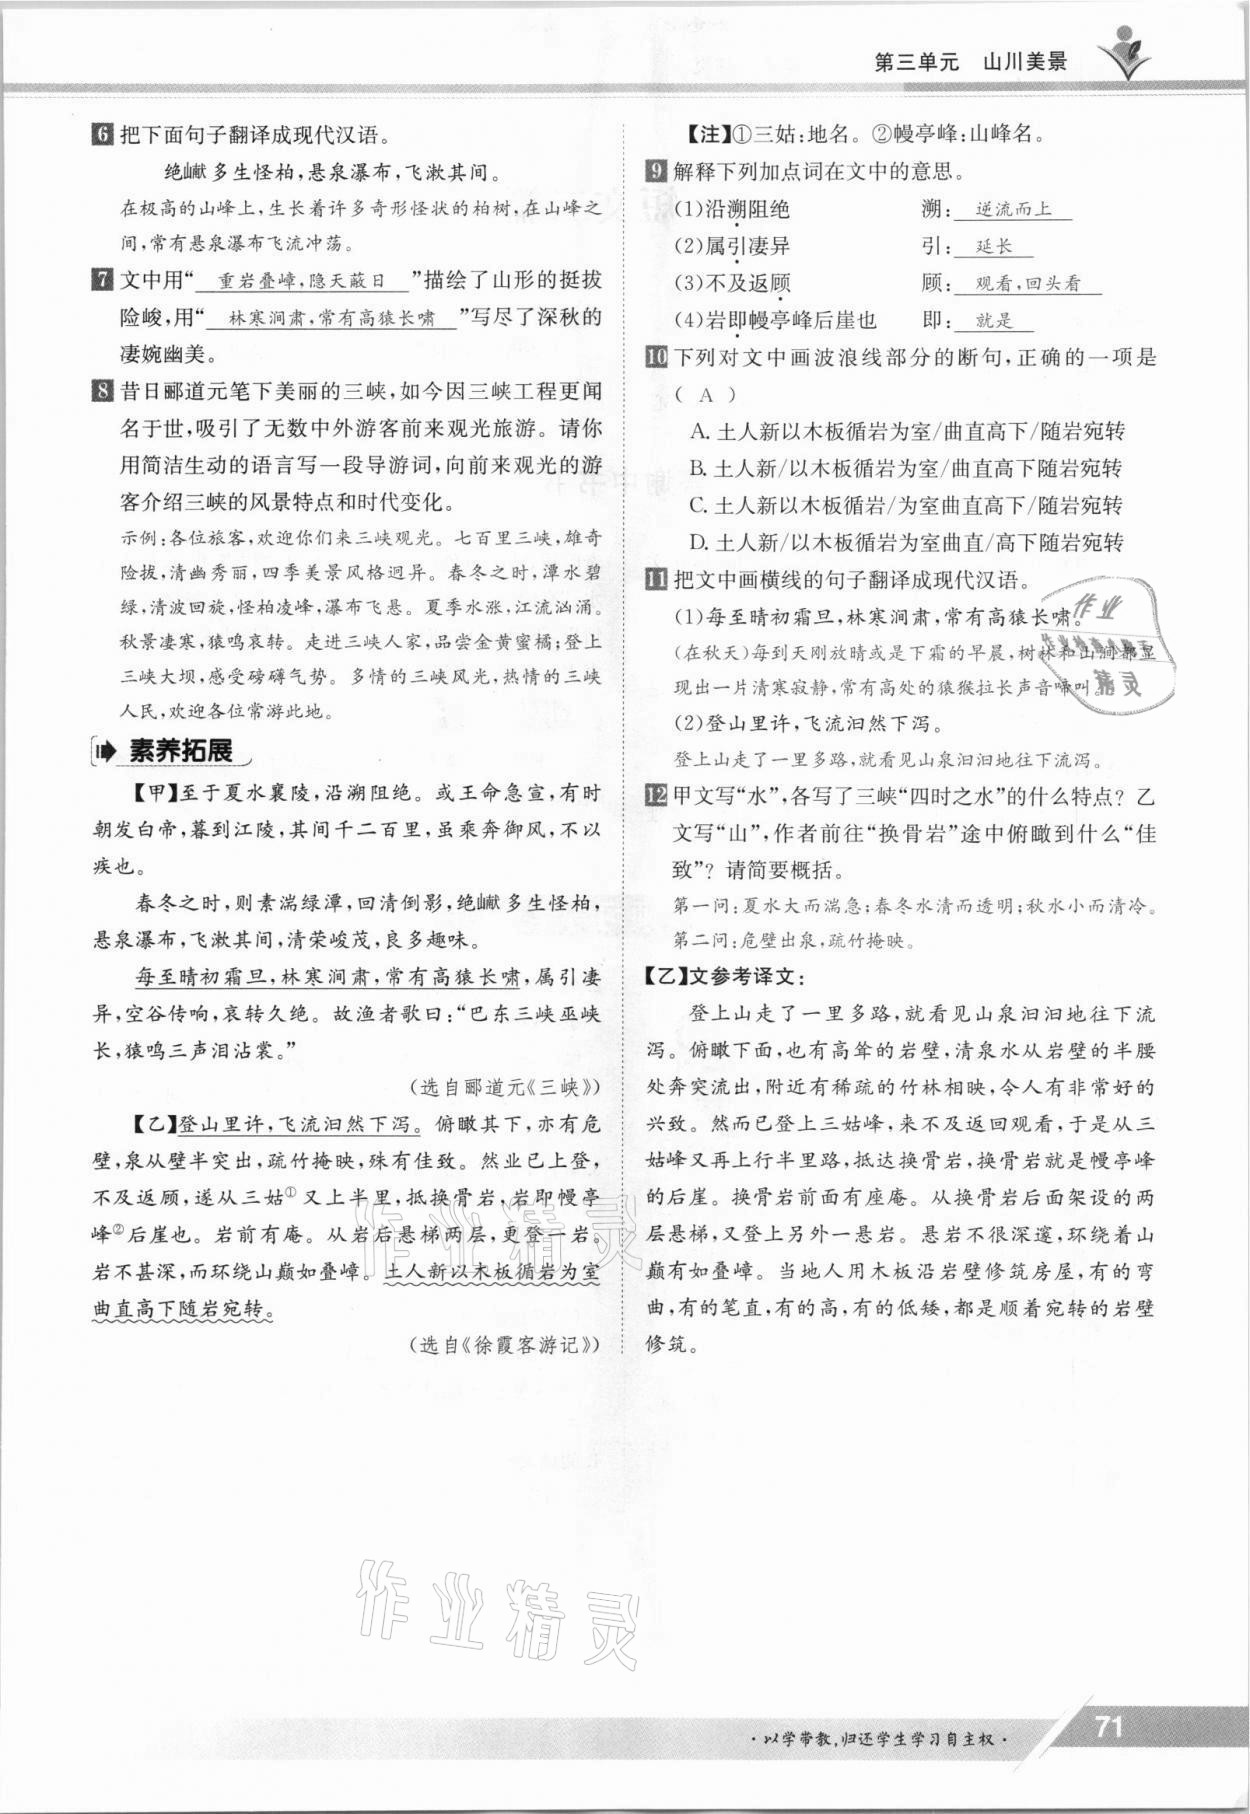 第三单元　山川美景
6 把下面句子翻译成现代汉语。
绝巘多生怪柏,悬泉瀑布,飞漱其间。
在极高的山峰上,生长着许多奇形怪状的柏树,在山峰之
间,常有悬泉瀑布飞流冲荡。
7 文中用“重岩叠嶂,隐天蔽日”描绘了山形的挺拔
险峻,用“林寒涧肃,常有高猿长啸”写尽了深秋的
凄婉幽美。
8 昔日郦道元笔下美丽的三峡,如今因三峡工程更闻
名于世,吸引了无数中外游客前来观光旅游。请你
用简洁生动的语言写一段导游词,向前来观光的游
客介绍三峡的风景特点和时代变化。
示例:各位旅客,欢迎你们来三峡观光。七百里三峡,雄奇
险拔,清幽秀丽,四季美景风格迥异。春冬之时,潭水碧
绿,清波回旋,怪柏凌峰,瀑布飞悬。夏季水涨,江流汹涌。
秋景凄寒,猿鸣哀转。走进三峡人家,品尝金黄蜜橘;登上
三峡大坝,感受磅礴气势。多情的三峡风光,热情的三峡
人民,欢迎各位常游此地。
素养拓展
【甲】至于夏水襄陵,沿溯阻绝。或王命急宣,有时
朝发白帝,暮到江陵,其间千二百里,虽乘奔御风,不以
疾也。
春冬之时,则素湍绿潭,回清倒影,绝巘多生怪柏,
悬泉瀑布,飞漱其间,清荣峻茂,良多趣味。
每至晴初霜旦,林寒涧肃,常有高猿长啸,属引凄
异,空谷传响,哀转久绝。故渔者歌曰:“巴东三峡巫峡
长,猿鸣三声泪沾裳。”
(选自郦道元《三峡》)
【乙】登山里许,飞流汩然下泻。俯瞰其下,亦有危
壁,泉从壁半突出,疏竹掩映,殊有佳致。然业已上登,
不及返顾,遂从三姑①又上半里,抵换骨岩,岩即幔亭
峰②后崖也。岩前有庵。从岩后悬梯两层,更登一岩。
岩不甚深,而环绕山巅如叠嶂。土人新以木板循岩为室
曲直高下随岩宛转。
(选自《徐霞客游记》)
【注】①三姑:地名。②幔亭峰:山峰名。
9 解释下列加点词在文中的意思。
(1)沿溯阻绝　溯:逆流而上
(2)属引凄异　引:延长
(3)不及返顾　顾:观看,回头看
(4)岩即幔亭峰后崖也　即:就是
10 下列对文中画波浪线部分的断句,正确的一项是
( A )
A. 土人新以木板循岩为室/曲直高下/随岩宛转
B. 土人新/以木板循岩为室/曲直高下随岩宛转
C. 土人新以木板循岩/为室曲直高下/随岩宛转
D. 土人新/以木板循岩为室曲直/高下随岩宛转
11 把文中画横线的句子翻译成现代汉语。
(1)每至晴初霜旦,林寒涧肃,常有高猿长啸。
(在秋天)每到天刚放晴或是下霜的早晨,树林和山涧都显
现出一片清寒寂静,常有高处的猿猴拉长声音啼叫。
(2)登山里许,飞流汩然下泻。
登上山走了一里多路,就看见山泉汩汩地往下流泻。
12 甲文写“水”,各写了三峡“四时之水”的什么特点? 乙
文写“山”,作者前往“换骨岩”途中俯瞰到什么“佳
致”? 请简要概括。
第一问:夏水大而湍急;春冬水清而透明;秋水小而清冷。
第二问:危壁出泉,疏竹掩映。
【乙】文参考译文:
登上山走了一里多路,就看见山泉汩汩地往下流
泻。俯瞰下面,也有高耸的岩壁,清泉水从岩壁的半腰
处奔突流出,附近有稀疏的竹林相映,令人有非常好的
兴致。然而已登上三姑峰,来不及返回观看,于是从三
姑峰又再上行半里路,抵达换骨岩,换骨岩就是幔亭峰
的后崖。换骨岩前面有座庵。从换骨岩后面架设的两
层悬梯,又登上另外一悬岩。悬岩不很深邃,环绕着山
巅有如叠嶂。当地人用木板沿岩壁修筑房屋,有的弯
曲,有的笔直,有的高,有的低矮,都是顺着宛转的岩壁
修筑。
作业
作业精灵
精灵
作业精灵
作业精灵
·以学带教,归还学生学习自主权·
71